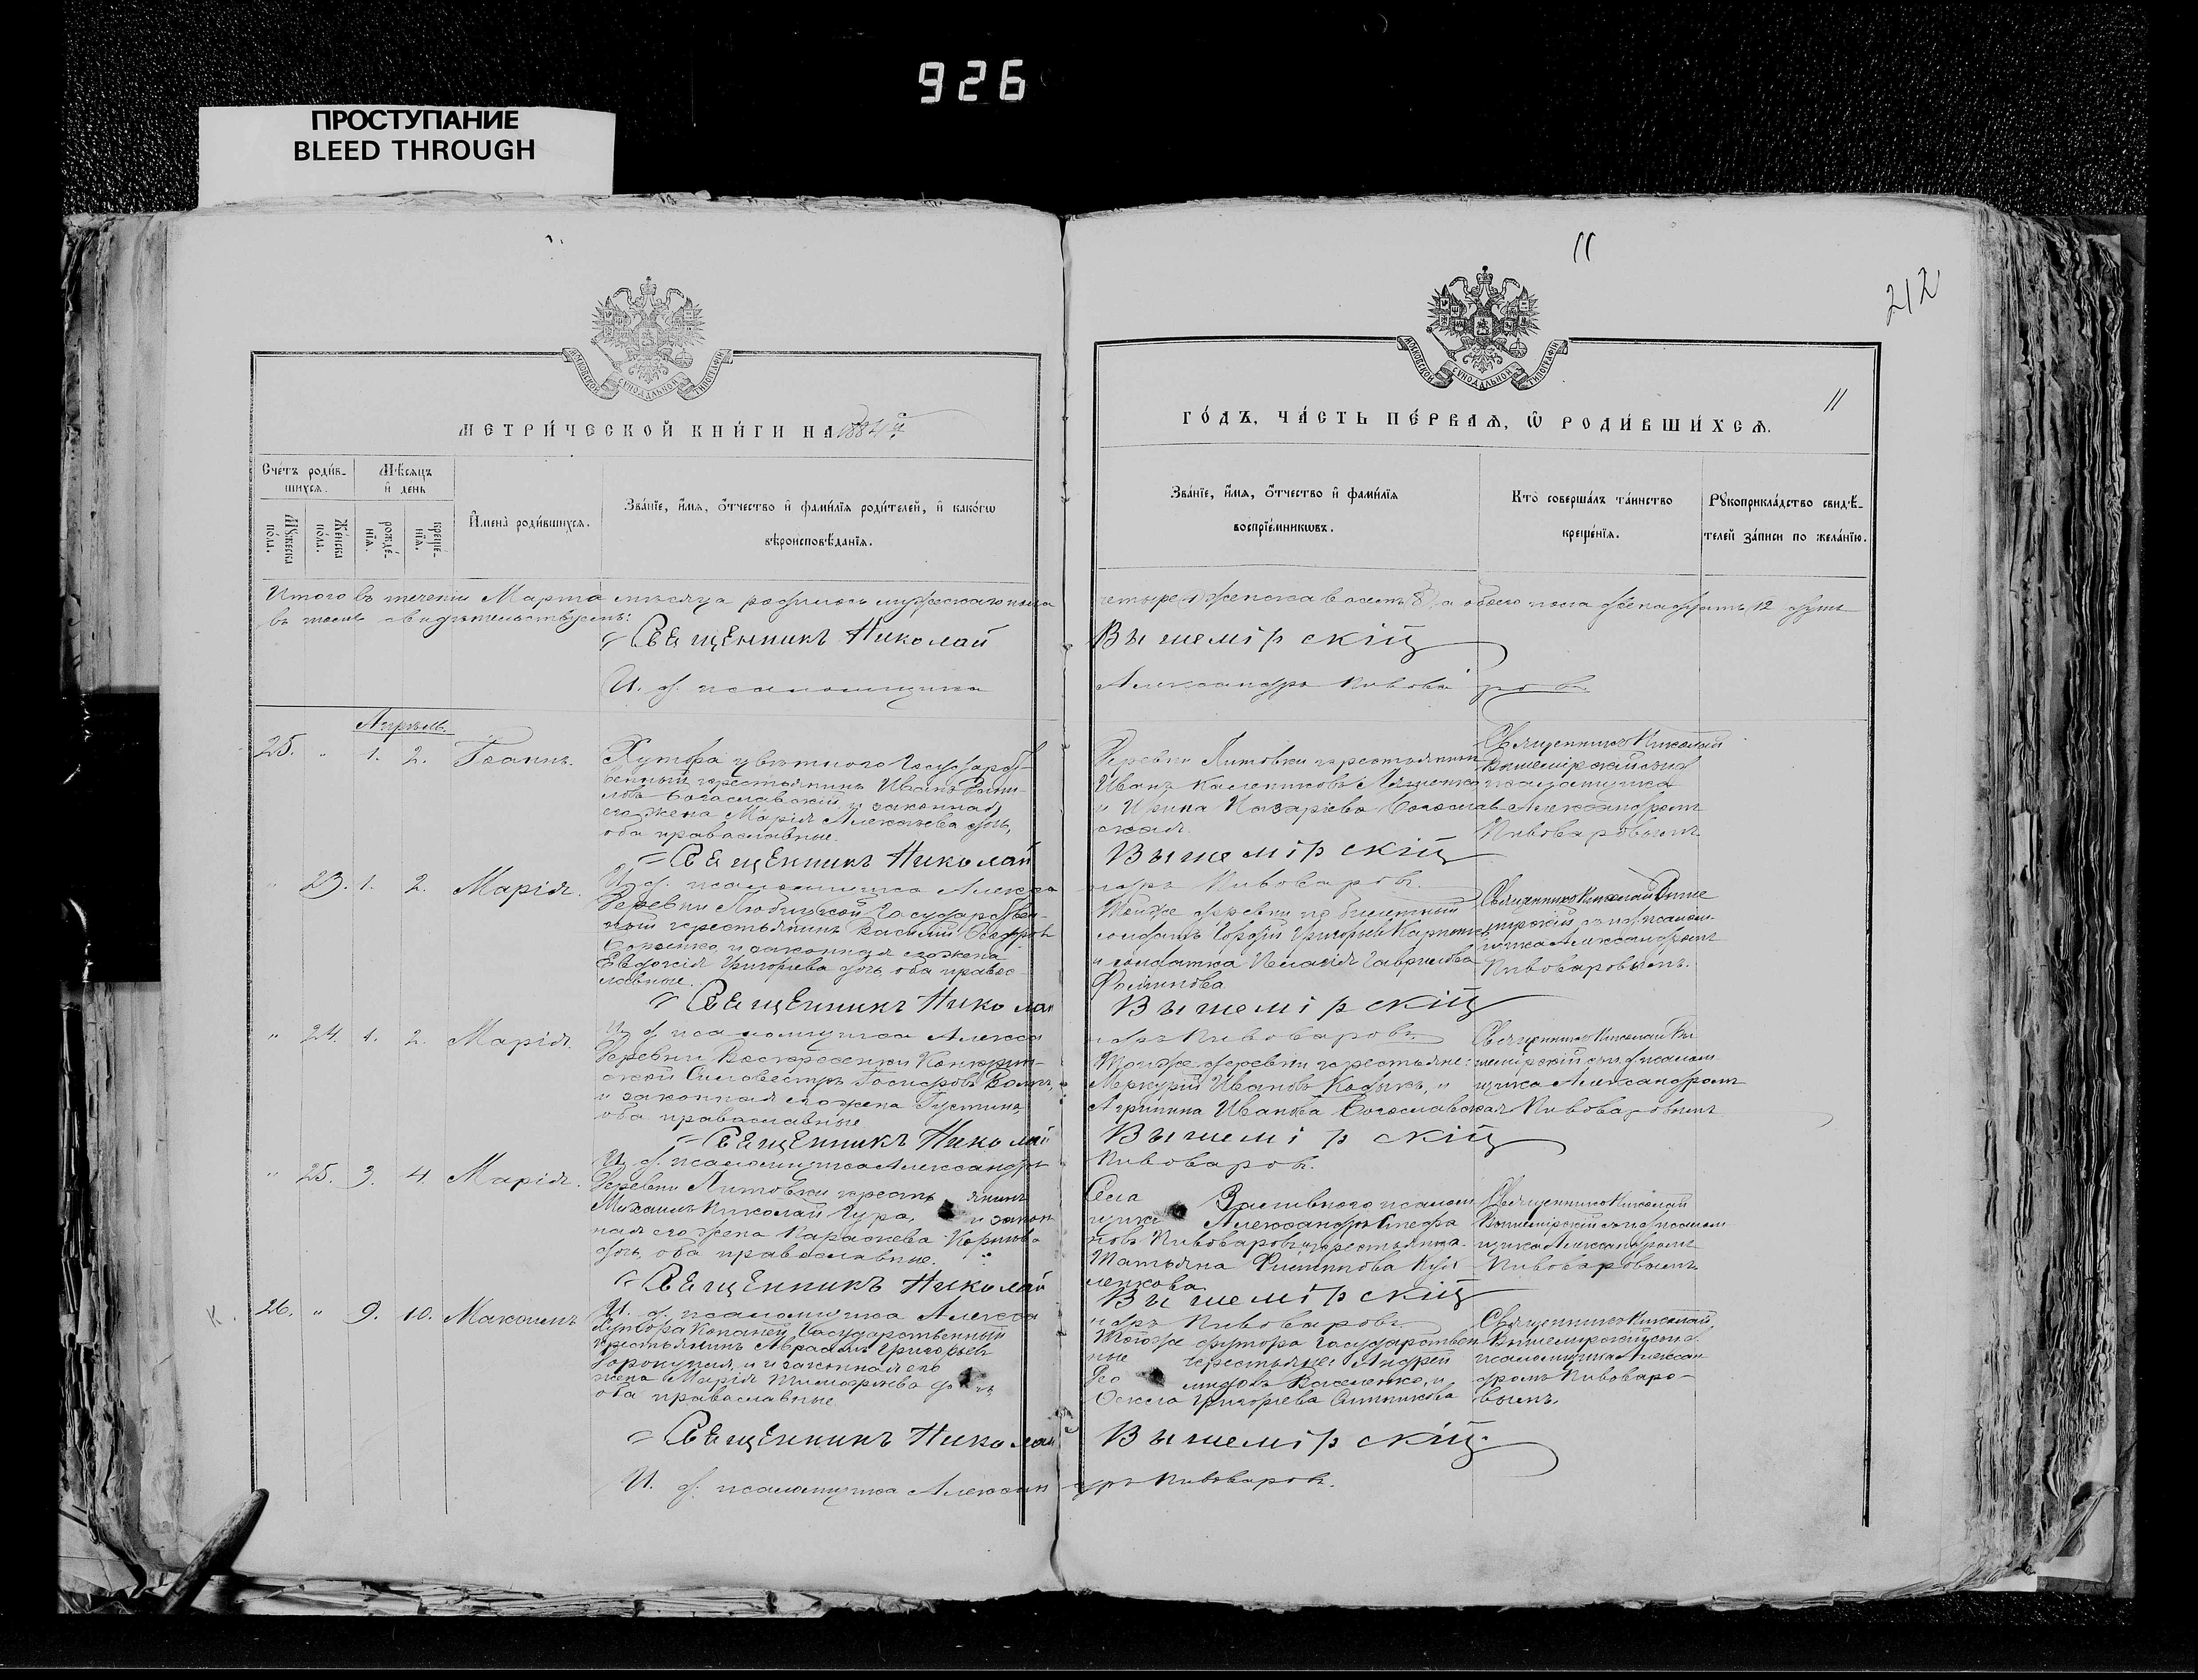 926
ПРОСТУПАНИЕ
BLEED THROUGH
11
212
МОСКОВСКОЙ СѴНОДАЛЬНОЙ ТИПОГРАФІИ
МОСКОВСКОЙ СѴНОДАЛЬНОЙ ТИПОГРАФІИ
МЕТРИ́ЧЕСКОЙ КНИ́ГИ НА 1884 й
ГО́ДЪ, ЧА́СТЬ ПЕ́РВАѦ, Ѡ҆ РОДИ́ВШИ́ХСѦ.
11
Сче́тъ роди́в-
шихсѧ.
Мѣ́сѧцъ
и҆ де́нь
Мꙋ́жеска по́ла.
Же́нска по́ла.
рожде́-нїѧ.
креще́-нїѧ.
И҆мена̀ роди́вшихсѧ.
Зва́нїе, и҆́мѧ, ѻ҆́тчество и҆ фами́лїѧ роди́телей, и҆ како́гѡ
вѣроисповѣ́данїѧ.
Зва́нїе, и҆́мѧ, ѻ҆́тчество и҆ фами́лїѧ
воспрїе́мникѡвъ.
Кто̀ соверша́лъ та́инство
креще́нїѧ.
Рꙋкоприкла́дство свидѣ́-
телей за́писи по жела́нїю.
Итого въ течении Марта мѣсяца родилось мужескаго пола
четыре (4) женска восемь (8), а обоего пола двенадцать 12 душъ
въ томъ свидѣтельствуемъ:
Священникъ Николай Вышемірскій
И. д. псаломщика Александръ Пивоваровъ
Апрѣль.
25. " 1. 2. Іоаннъ.
Хутора Цвѣтного Государст-
венный крестьянинъ Иванъ
Богославскій и законная
его жена Марія Алексѣева дочь,
оба православные.
Деревни Литовки крестьянинъ
Иванъ
и Ирина Назаріева Богослав-
ская.
Священникъ Николай
Вышемірскій съ и д
псаломщика
Александромъ
Пивоваровымъ
Священникъ Николай Вышемірскій
И. д. псаломщика Александръ Пивоваровъ.
" 23. 1. 2. Марія.
Деревни Любицкой Государствен-
ный крестьянинъ Василій
и законная его жена
Евдокія Григорьева дочь, оба правос-
лавные.
Тойже деревни по билетный
солдатъ Гордій Григорьевъ
и солдатка Пелагія Гаврилова
Филипова
Священникъ Николай Выше
мірскій съ и д псалом-
щика Александромъ
Пивоваровымъ.
Священникъ Николай Вышемірскій
И. д. псаломщика Александръ Пивоваровъ.
" 24. 1. 2. Марія.
Деревни Воскресенки
Сильвестръ
и законная его жена Густина,
оба православные
Тойже деревни крестьяне:
Меркурій Ивановъ и
Агрипина Иванова Богославская
Священникъ Николай Вы
шемірскій съ и д псалом
щика Александромъ
Пивоваровымъ
Священникъ Николай Вышемірскій
И. д. псаломщика Александръ Пивоваровъ.
" 25. 3. 4. Марія.
Деревни Литовки крестьянинъ
Михаилъ Николай Гура, и закон
ная его жена
дочь, оба православные.
Села Заливного псалом
щикъ Александръ Стефа
новъ Пивоваровъ и крестьянка
Татьяна Филипова
Священникъ Николай
Вышемірскій съ и д псалом
щика Александромъ
Пивоваровымъ.
Священникъ Николай Вышемірскій
И. д. псаломщика Александръ Пивоваровъ.
К. 26. " 9. 10. Максимъ
Хутора Копаней Государственный
крестьянинъ Авраамъ Григорьевъ
и законная его
жена Марія Тимофѣева дочь
оба православные.
Тогоже хутора Государствен
ные крестьяне: Андрей
Василенко, и
Григорьева
Священникъ Николай
Вышемірскій съ и д
псаломщика Алексан
дромъ Пивоваро-
вымъ.
Священникъ Николай Вышемірскій.
И. д. псаломщика Александръ Пивоваровъ.